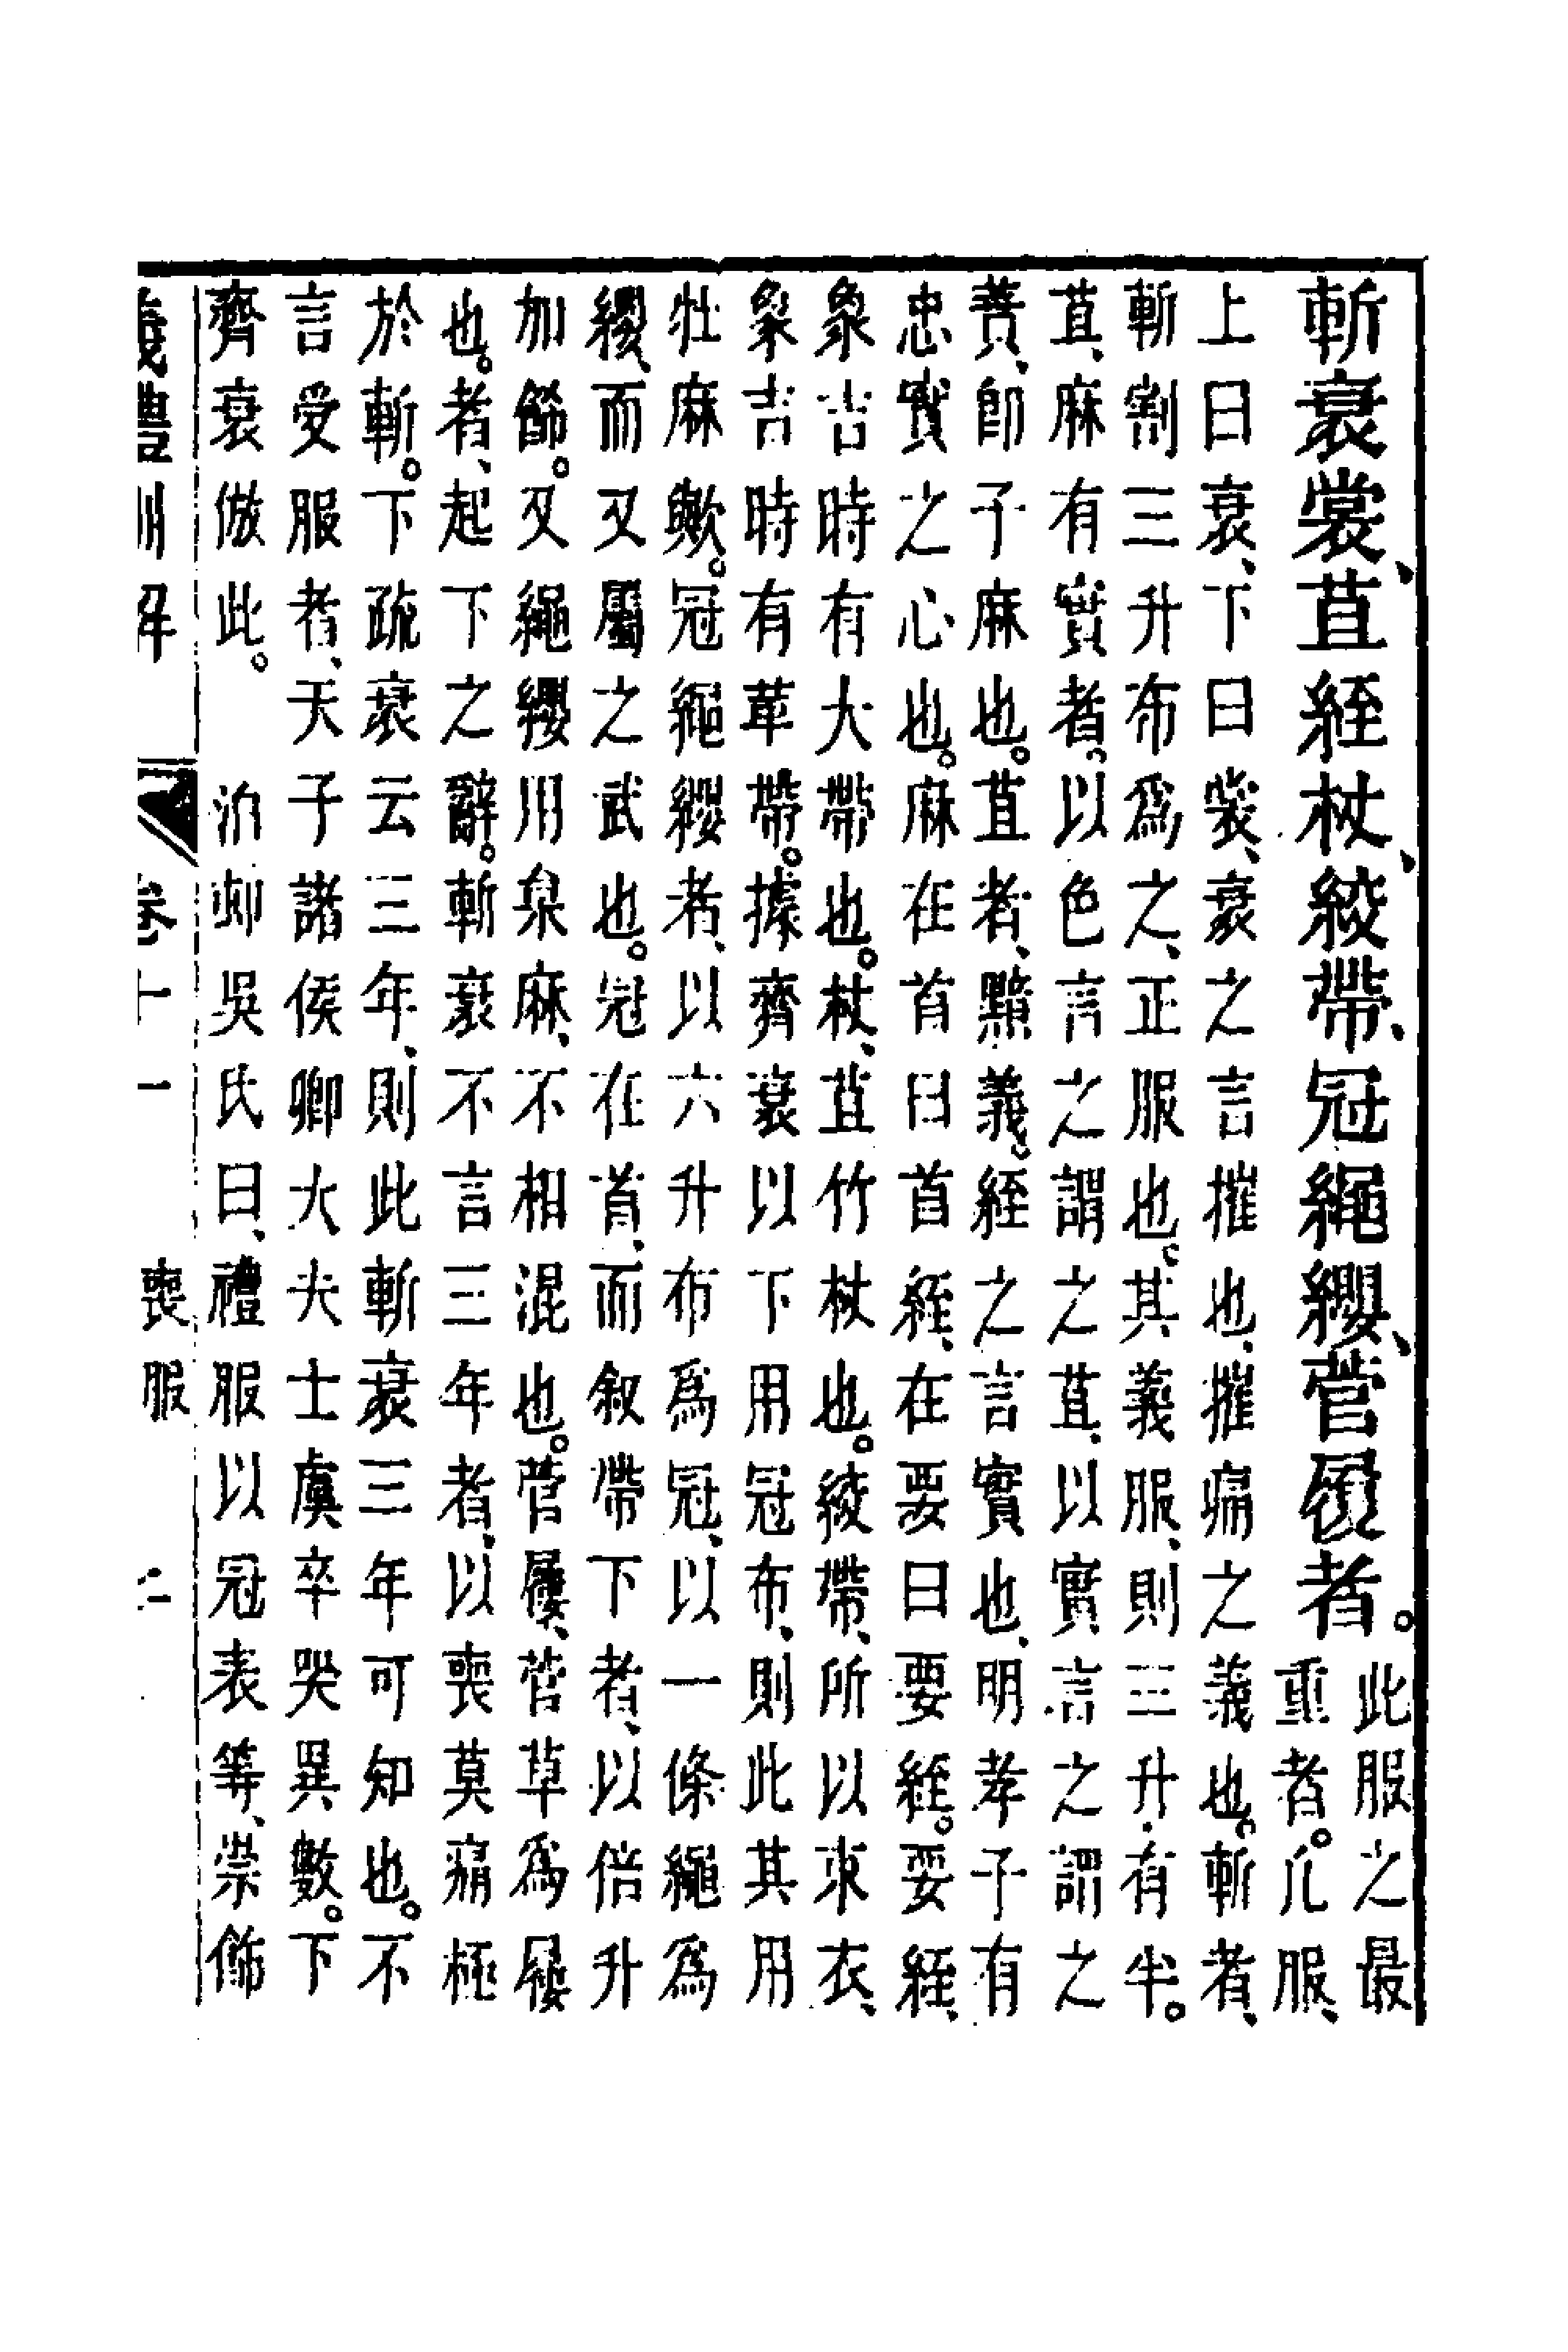 斬衰裳、苴絰杖、絞帶、冠繩纓、菅屨者。此服之最
重者。凡服、
上曰衰、下曰裳、衰之言摧也、摧痛之義也。斬者、
斬割三升布爲之、正服也。其義服、則三升有半。
苴、麻有實者。以色言之謂之苴、以實言之謂之
蕡、卽子麻也。苴者、黯義。絰之言實也、明孝子有
忠實之心也。麻在首曰首絰、在要曰要絰。要絰、
象吉時有大帶也。杖、苴竹杖也。絞帶、所以束衣、
象吉時有革帶。據齊衰以下用冠布、則此其用
牡麻歟。冠繩纓者、以六升布爲冠、以一條繩爲
纓、而又屬之武也。冠在首、而叙帶下者、以倍升
加飾。又繩纓用枲麻、不相混也。菅屨、菅草爲屨
也。者、起下之辭。斬衰不言三年者、以喪莫痛極
於斬。下疏衰云三年、則此斬衰三年可知也。不
言受服者、天子諸侯卿大夫士虞卒哭異數。下
齊衰倣此。 泊邨吳氏曰、禮服以冠表等、崇飾
儀禮訓解 卷十一 喪服 二